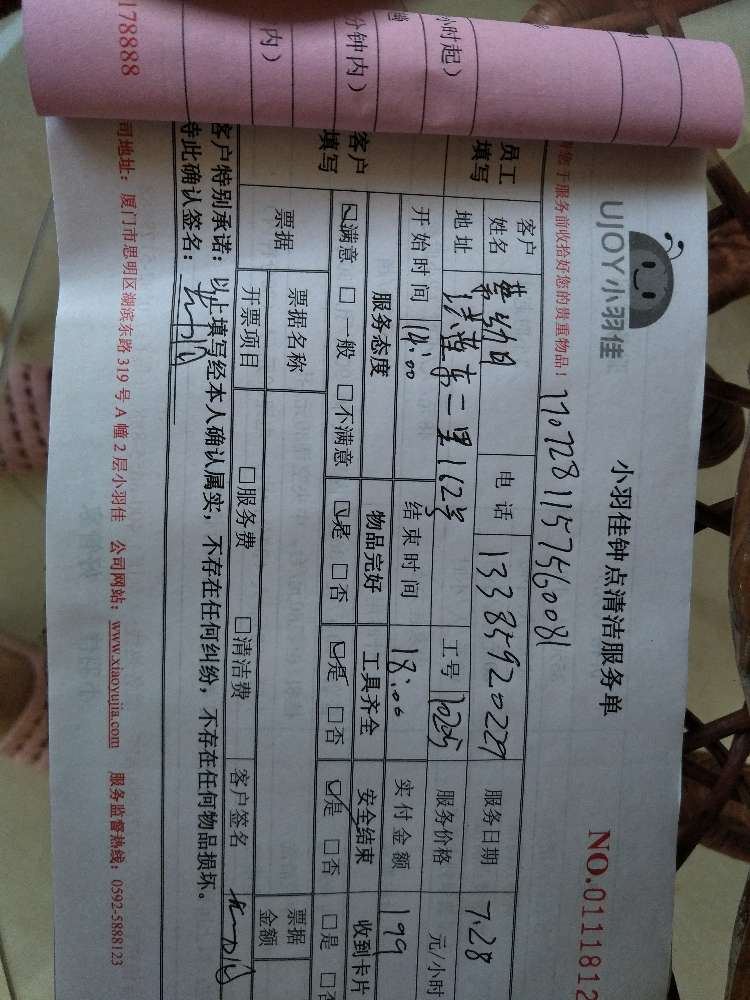 UJOY小羽佳
小羽佳钟点清洁服务单
NO.0111812
您于服务前收拾好您的贵重物品！
员工填写
客户姓名
电话 13385920229
服务日期 7.28
地址
二里162号
工号
服务价格
元/小时
开始时间 14:00
结束时间 18:00
实付金额 199
客户填写
服务态度 物品完好 工具齐全 安全结束 收到卡片
☑满意 □一般 □不满意 ☑是 □否 ☑是 □否 ☑是 □否 □是 □否
票据
票据名称
票据金额
开票项目 □服务费 □清洁费 客户签名
客户特别承诺：以上填写经本人确认属实，不存在任何纠纷，不存在任何物品损坏。
特此确认签名：
司地址：厦门市思明区湖滨东路319号A幢2层小羽佳 公司网站：www.xiaoyujia.com 服务监督热线：0592-5888123
小时起）
分钟内）
内）
178888